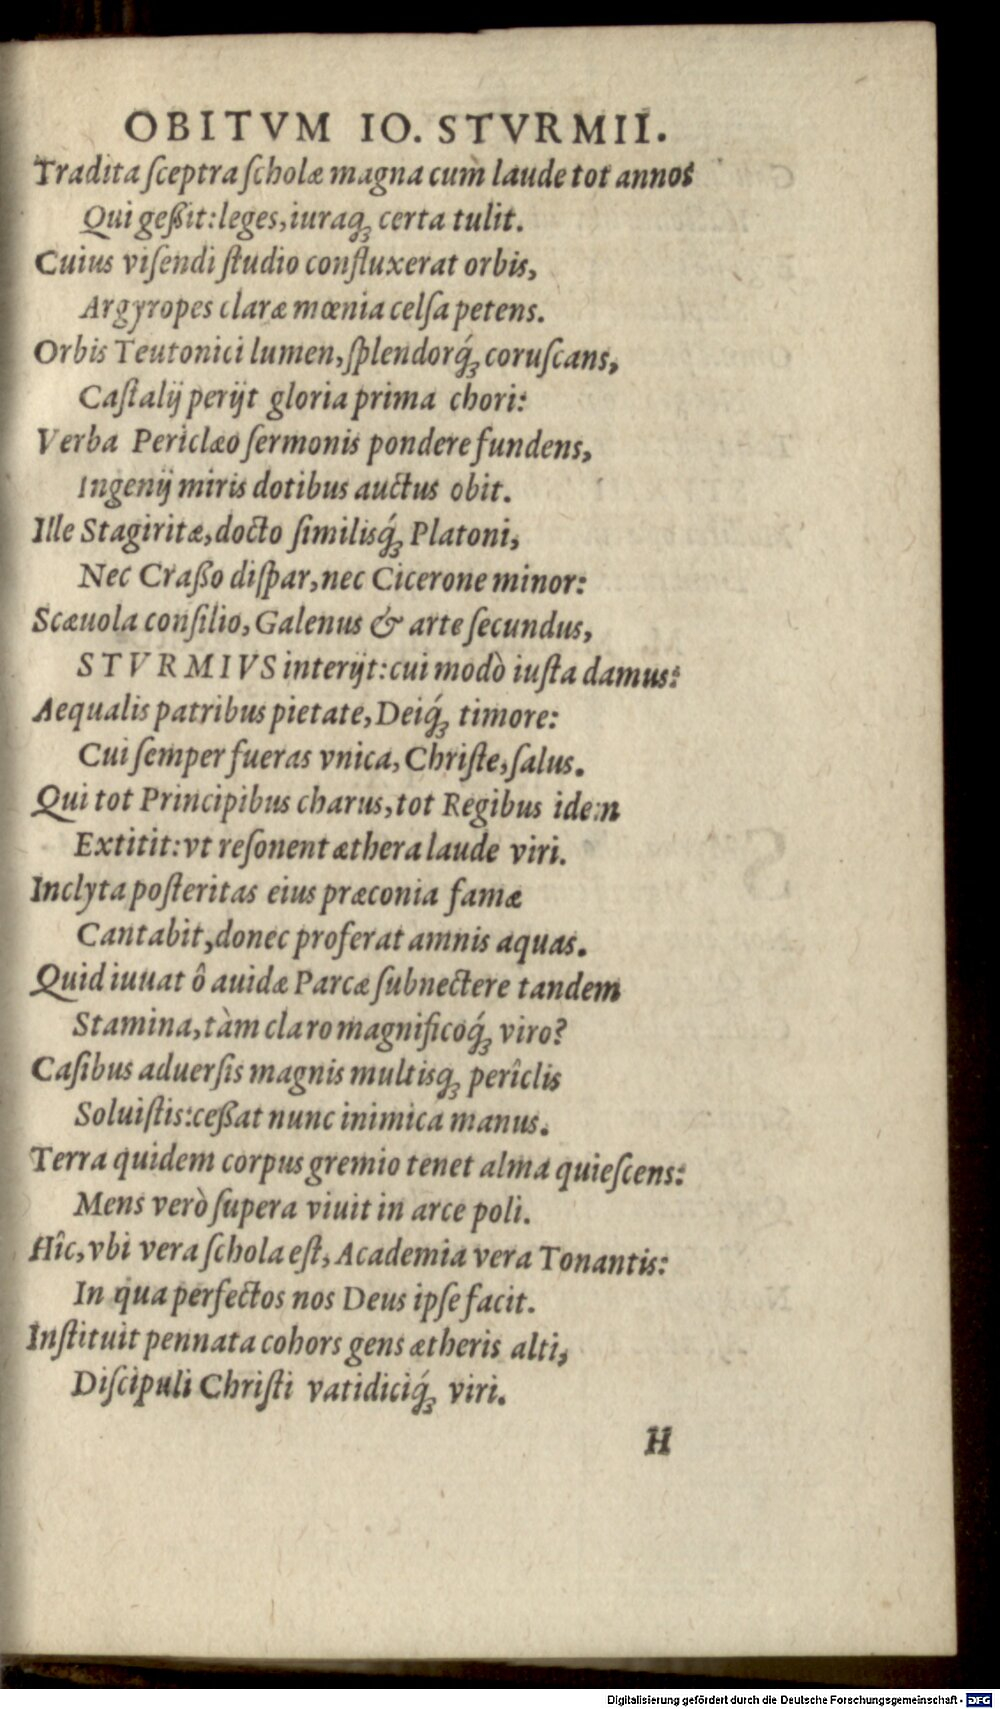 OBITVM IO. STVRMII.
Tradita ſceptra ſcholæ magna cum laude tot annos
Qui geßit: leges, iuraqꝫ certa tulit.
Cuius viſendi ſtudio confluxerat orbis,
Argyropes claræ mœnia celſa petens.
Orbis Teutonici lumen, ſplendorq́ꝫ coruſcans,
Caſtalij perijt gloria prima chori:
Verba Periclæo ſermonis pondere fundens,
Ingenij miris dotibus auctus obit.
Ille Stagiritæ, docto ſimilisq́ꝫ Platoni,
Nec Craßo diſpar, nec Cicerone minor:
Scæuola conſilio, Galenus & arte ſecundus,
STVRMIVS interijt: cui modò iuſta damus:
Aequalis patribus pietate, Deiq́ꝫ timore:
Cui ſemper fueras vnica, Chriſte, ſalus.
Qui tot Principibus charus, tot Regibus idem
Extitit: vt reſonent æthera laude viri.
Inclyta poſteritas eius præconia famæ
Cantabit, donec proferat amnis aquas.
Quid iuuat ô auidæ Parcæ ſubnectere tandem
Stamina, tàm claro magnificoq́ꝫ viro?
Caſibus aduerſis magnis multisqꝫ perîclis
Soluiſtis: ceßat nunc inimica manus.
Terra quidem corpus gremio tenet alma quieſcens:
Mens verò ſupera viuit in arce poli.
Hîc, vbi vera ſchola eſt, Academia vera Tonantis:
In qua perfectos nos Deus ipſe facit.
Inſtituit pennata cohors gens ætheris alti,
Diſcipuli Chriſti vatidiciq́ꝫ viri.
H
Digitalisierung gefördert durch die Deutsche Forschungsgemeinschaft - DFG